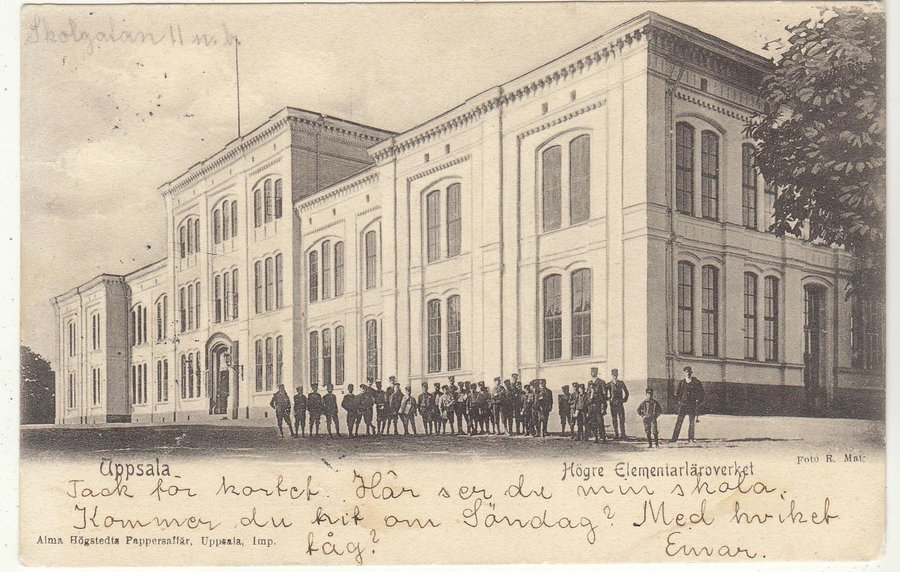 Skolgatan 11 n.b.
Uppsala
Högre Elementarläroverket
Foto R. Mat:
Tack för kortet. Här ser du min skola.
Kommer du hit om Söndag? Med hvilket
Alma Högstedts Pappersaffär, Uppsala, Imp.
tåg?
Einar.